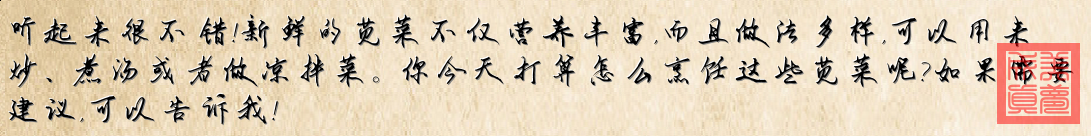 听起来很不错!新鲜的苋菜不仅营养丰富,而且做法多样,可以用来
炒、煮汤或者做凉拌菜。你今天打算怎么烹饪这些苋菜呢?如果需要
建议,可以告诉我!